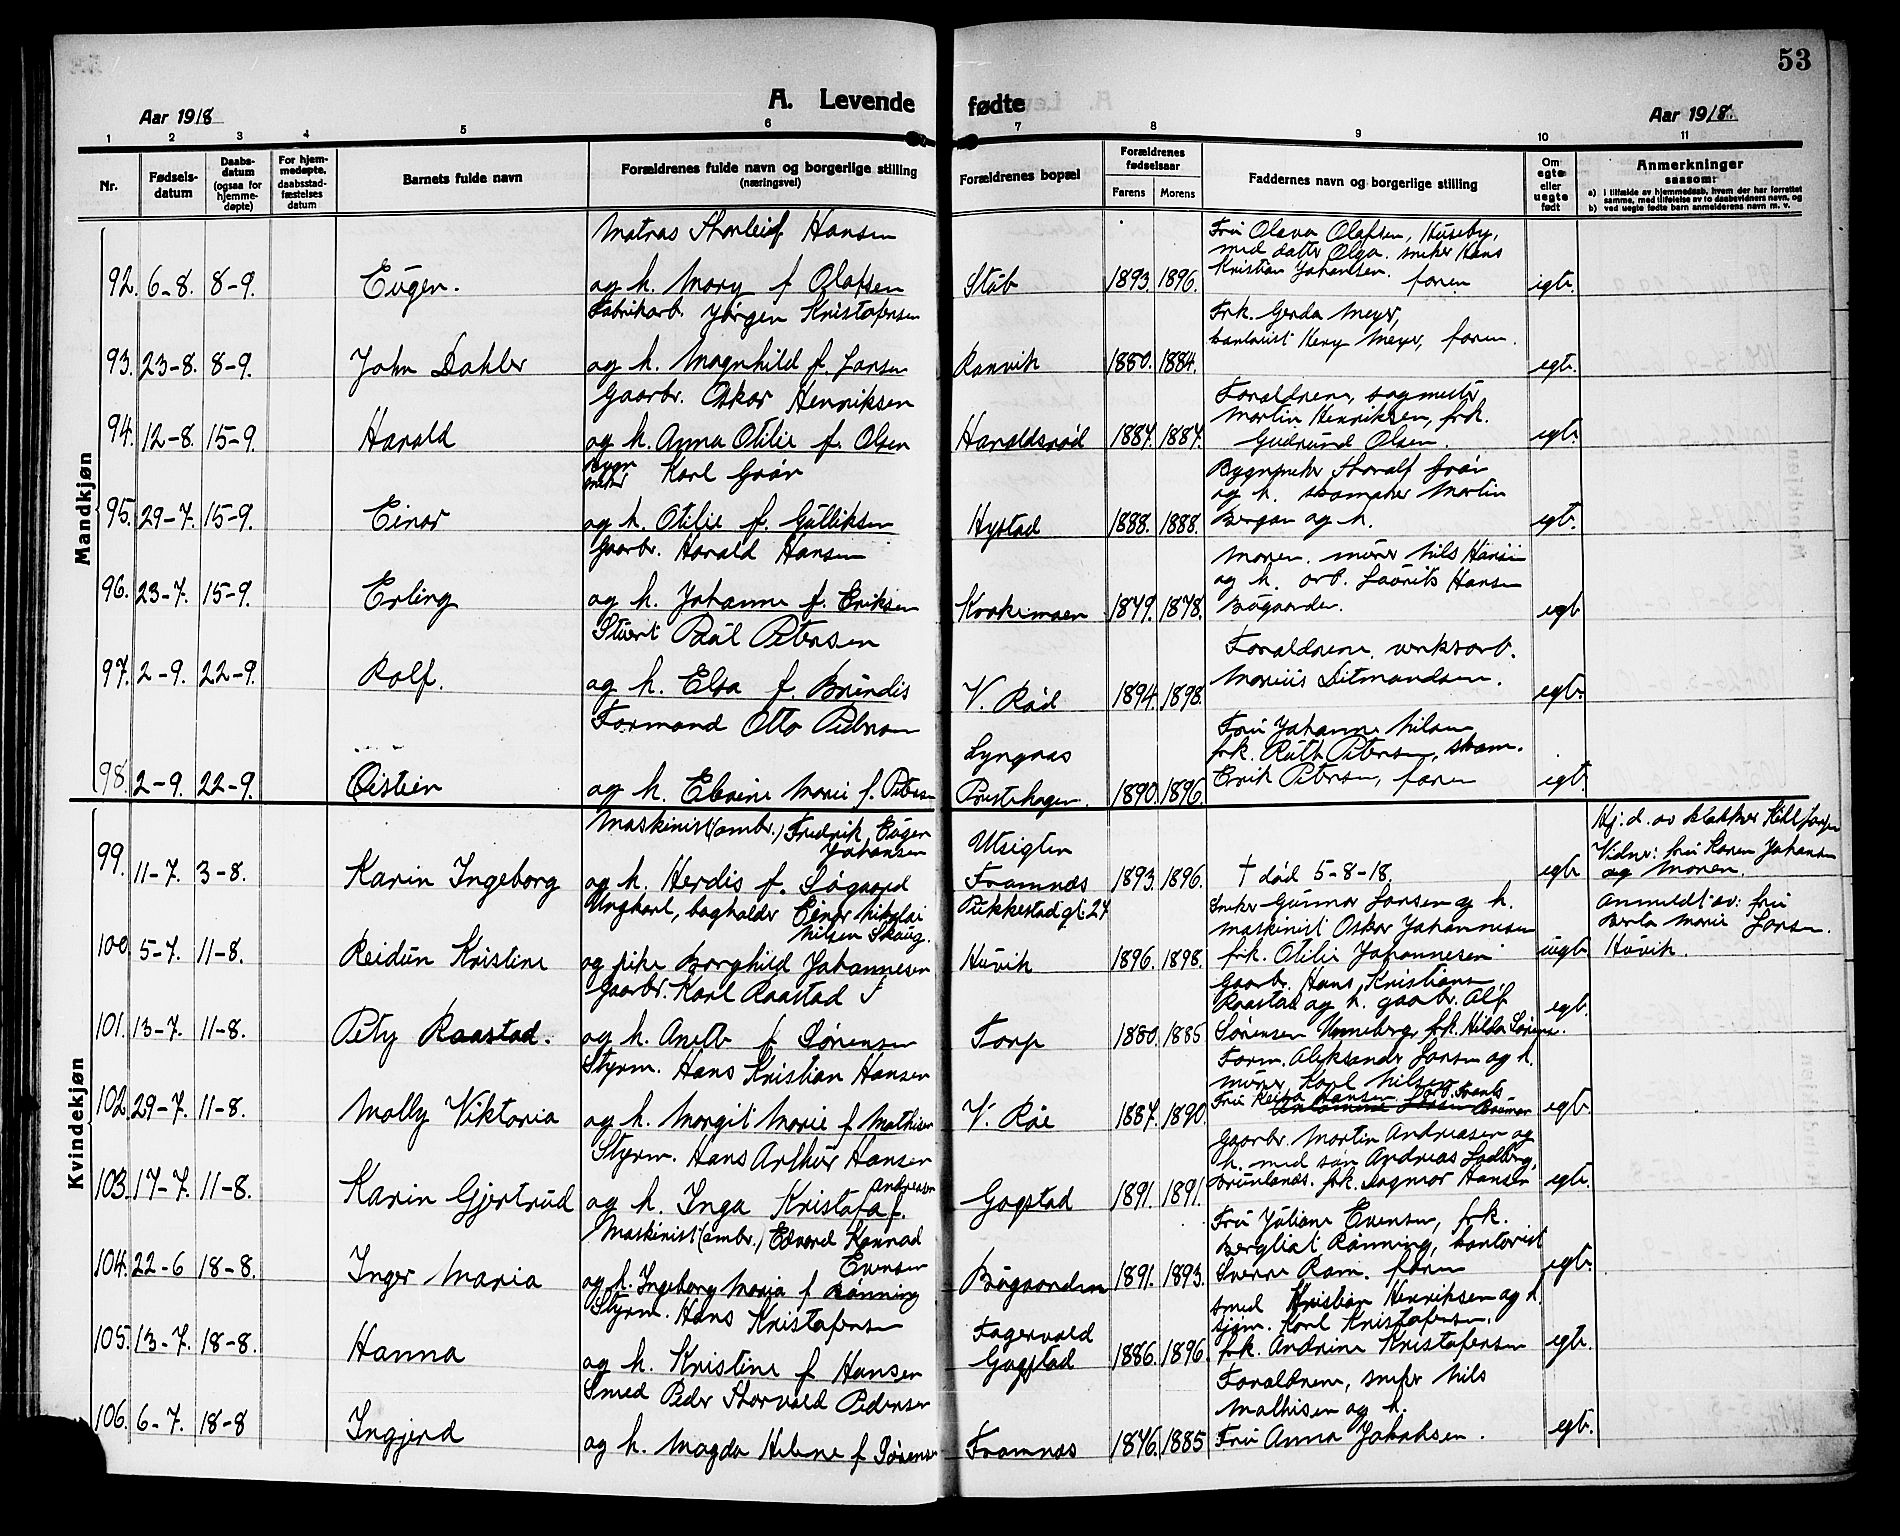 53
A. Levende fødte
Aar 1918
Aar 1918.
1 2 3 4 5 6 7 8 9 10 11
Nr.
Fødsels-
datum
Daabs-
datum
(ogsaa for
hjemme-
døpte)
For hjem-
medøpte,
daabsstad-
fæstelses
datum
Barnets fulde navn
Forældrenes fulde navn og borgerlige stilling
(næringsvei)
Forældrenes bopæl
Forældrenes
fødselsaar
Farens Morens
Faddernes navn og borgerlige stilling
Om
egte
eller
uegte
født
Anmerkninger
saasom:
a) i tilfælde av hjemmedaab, hvem der har forrettet
samme, med tilføielse av to daabsvidners navn, og
b) ved uegte fødte barn anmelderens navn m. v.
Mandkjøn
Matros Thorleif Hansen Fru Olava Olafsen, Huseby,
med datter Olga. snekker Hans
92. 6-8. 8-9. Eugen. og h. Mary f Olafsen Støb 1893. 1896. Kristian Johansen. faren egt.
Fabrikarb. Jørgen Kristofersen Frk. Gerda Meyer,
93. 23-8. 8-9. John Dahler og h. Magnhild f. Larsen Ranvik 1880. 1884. kontorist Meyer, faren. egt.
Gaarbr. Oskar Henriksen Forældrene, sagmestr
Martin Henriksen, frk.
94. 12-8. 15-9. Harald og h. Anna Otilie f. Olsen Haraldsrød 1884. 1887. Gudrund Olsen. egt.
Karl Grøv
og h. skomaker Martin
95. 29-7. 15-9. Einar og h. Otilie f. Gulliksen Hystad 1888. 1888. Bergan og h. egt.
Gaarbr. Harald Hansen Moren. murer Nils Hansen
og h. arb. Laurits Hansen
96. 23-7. 15-9. Erling og h. Johanne f. Eriksen 1879. 1878. Bøgaarden. egt
Stuert Paul Petersen Forældrene. verksarb.
97. 2-9. 22-9. Rolf. og h. Elsa f. V. Rød 1894. 1898. Marius Ditmandsen. egt.
Formand Otto Pedersen Fru Johanne Nilsen
Lyngaas frk. Ruth Petersen, skom.
98. 2-9. 22-9. Øistein og h. Marie f. Petersen Prestehagen. 1890. 1896. Erik Petersen, faren egt.
Kvindekjøn
Maskinist (ambr.) Fredrik Eugen
Johansen Utsigten Hj. d. av
99. 11-7. 3-8. Karin Ingeborg og h. Herdis f. Søgaard Framnæs 1893. 1896. † død 5-8-18. egt. Vidner: fru Karen Johansen
og moren.
Ungkarl, bogholder Einar Nikolai
Nilsen Skaug. Pukkestad gt. 24 Sneker Gunnar Larsen og h.
maskinist Oskar Johannesen Anmeldt av: fru
Berta Marie Larsen.
100. 5-7. 11-8. Reidun Kristine og pike Borghild Johannesen Huvik 1896. 1898. frk. Otilie Johannesen uegt. Huvik.
Gaarbr. Karl Raastad Gaarbr. Hans Kristiansen
Raastad og h. gaarbr. Alf
101. 13-7. 11-8. Pety Raastad. og h. Anette f Sørensen Torp 1880. 1885 Sørensen Unneberg frk. Hilda Sørens. egt.
Styrm. Hans Kristian Hansen Form. Aleksander Larsen og h.
murer Karl Nilsen
102 29-7. 11-8. Molly Viktoria og h. Margit Marie f Mathisen V. Røe 1887. 1890. Fru Hansen arb. Frants egt.
Styrm. Hans Arthur Hansen Gaarbr. Martin Andreasen og
h. med søn Andreas Ladberg,
103. 17-7. 11-8. Karin Gjertrud og h. Inga Kristofa f. Andresen Gogstad 1891. 1891. Brunlanes. frk. Dagmar Hansen egt.
Maskinist (ambr.) Edvard Konrad
Evensen Fru Juliane Evensen, frk.
Bergliot Rønning, kontorist
104. 22-6 18-8. Inger Maria og h. Ingeborg Maria f Rønning Bøgaarden 1891. 1893. Sverre Ram. faren egt.
Styrm. Hans Kristofersen Fagervold smed Kristian Henriksen og h.
sjøm. Karl Kristofersen.
105. 13-7. 18-8. Hanna og h. Kristine f Hansen Gogstad 1886. 1896. frk. Andrine Kristofersen egt.
Smed Peder Thorvald Pedersen Forældrene, snekker Nils
Mathisen og h.
106. 6-7. 18-8 Ingjerd og h. Magda Helene f Sørensen Framnæs 1876. 1885 Fru Anna Jakobsen. egt.